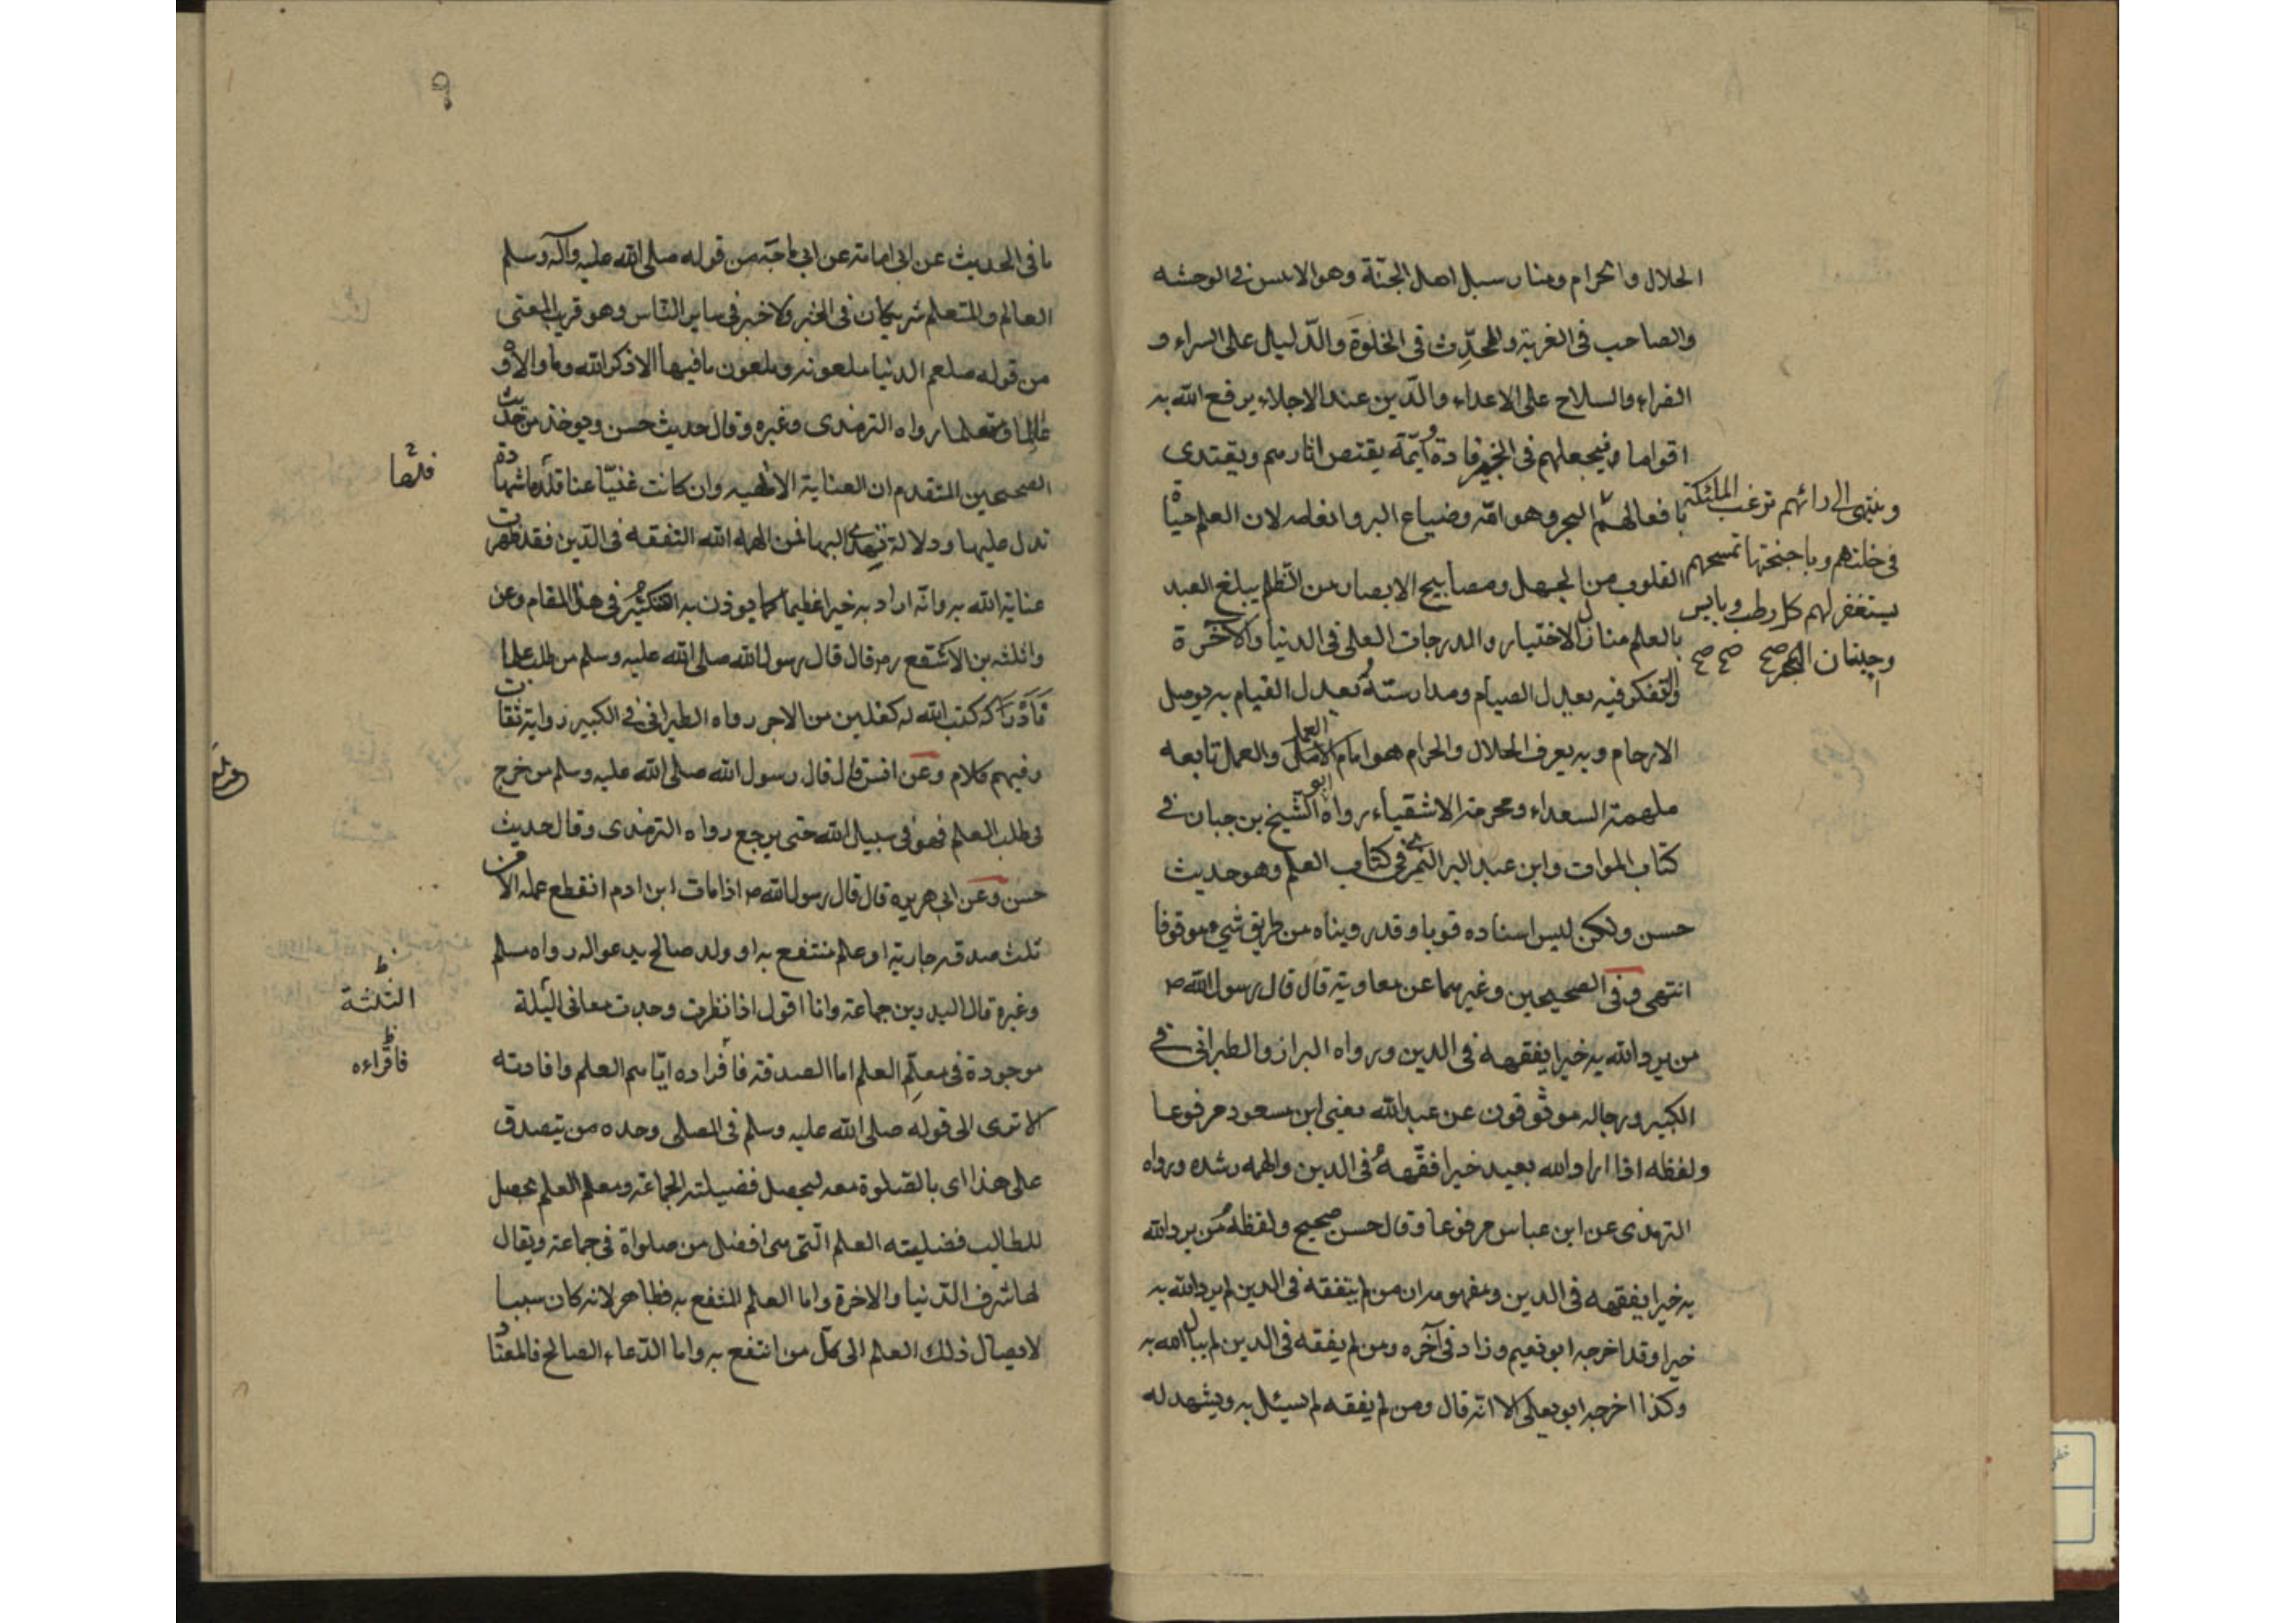 الحلال والحرام ومنار سبل اهل الجنة وهو الانس فى الوحشه
والصاحب فى الغربة والمحدِّث فى الخلوة والدّليل على السراء و
الضراء والسلاح على الاعداء والدّين عند الاجلاء يرفع الله به
اقواما فيجعلهم فى الخير قادة وائمّة يقتص اثارهم ويقتدى
بافعالهم
وينتهى الى رائهم ترغب الملئكة
فى خلتهم وباجنحتها تمسحهم
يستغفر لهم كل رطب ويابس
وحيتان البحر صح صح صح
البحر وهوامّه وضياع البر وانعامه لان العلم حياة
القلوب من الجهل ومصابيح الابصار من الظلم يبلغ العبد
بالعلم منازل الاختيار والدرجات العلى فى الدنيا والآخرة
والتفكر فيه يعدل الصيام ومدارسته تعدل القيام به يوصل
الارحام وبه يعرف الحلال والحرام هو امام العمل والعمل تابعه
ملهمة السعداء ومحرمة الاشقياء رواه ابو الشيخ بن حبان فى
كتاب الثواب وابن عبد البر النمرى فى كتاب العلم وهو حديث
حسن ولكن ليس اسناده قويا وقد رويناه من طريق شيء موقوفا
انتهى وفى الصحيحين وغيرهما عن معاوية قال قال رسول الله ص
من يرد الله به خيرا يفقهه فى الدين ورواه البزار والطبرانى فى
الكبير ورجاله موثوقون عن عبد الله يعنى ابن مسعود مرفوعا
ولفظه اذا اراد الله بعبد خيرا فقّهه فى الدين والهمه رشده ورواه
الترمذى عن ابن عباس مرفوعا وقال حسن صحيح ولفظه من يرد الله
به خيرا يفقهه فى الدين ومفهومه ان من لم يتفقه فى الدين لم يرد الله به
خيرا وقد اخرجه ابو نعيم وزاد فى آخره ومن لم يفقه فى الدين لم يبال الله به
وكذا اخرجه ابو يعلى الا انه قال ومن لم يفقه لم يبئل به ويشهد له
٩
ما فى الحديث عن ابى امامة عن ابى ماجة من قوله صلى الله عليه وآله وسلم
العالم والمتعلم شريكان فى الخير ولا خير فى ساير الناس وهو قريب المعنى
من قوله صلعم الدنيا ملعونة وملعون ما فيها الا ذكر الله وما والاه و
عالما ومتعلما رواه الترمذى وغيره وقال حديث حسن ويوخذ من حديث
الصحيحين المتقدم ان العناية الالهيه وان كانت غيبا عنا فلها شهادة
فلها
تدل عليها ودلالة تهدى اليها فمن الهمه الله التفقه فى الدّين فقد ظهرت
عناية الله به وانه اراد به خيرا عظيما كما يوذن به التنكير فى هذا المقام وعن
واثلة بن الاسقع رض قال قال رسول الله صلى الله عليه وسلم من طلب علما
فادركه كتب الله له كفلين من الاجر رواه الطبرانى فى الكبير رواية ثقات
وفيهم كلام وعن انس قال قال رسول الله صلى الله عليه وسلم من خرج
فى طلب العلم فهو فى سبيل الله حتى يرجع رواه الترمذى وقال حديث
حسن وعن ابى هريره قال قال رسول الله ص اذا مات ابن ادم انقطع عمله الا من
ثلث صدقة جارية او علم منتفع به او ولد صالح يدعو له رواه مسلم
وغيره قال البدر بن جماعة وانا اقول اذا نظرت وجدت معانى الثلثة
الثلثة
موجودة فى معلّم العلم اما الصدقة فافراده ايّاهم العلم وافادته
فاقراءه
الا ترى الى قوله صلى الله عليه وسلم فى المصلى وحده من يتصدق
على هذا اى بالصلوة معه ليحصل فضيلة الجماعة ومعلم العلم يحصل
للطالب فضيلته العلم التى هى افضل من صلواة فى جماعة ويقال
لها شرف الدّنيا والاخرة واما العلم المنتفع به فظاهر لانه كان سببا
لايصال ذلك العلم الى كل من انتفع به واما الدّعاء الصالح فالمعتاد